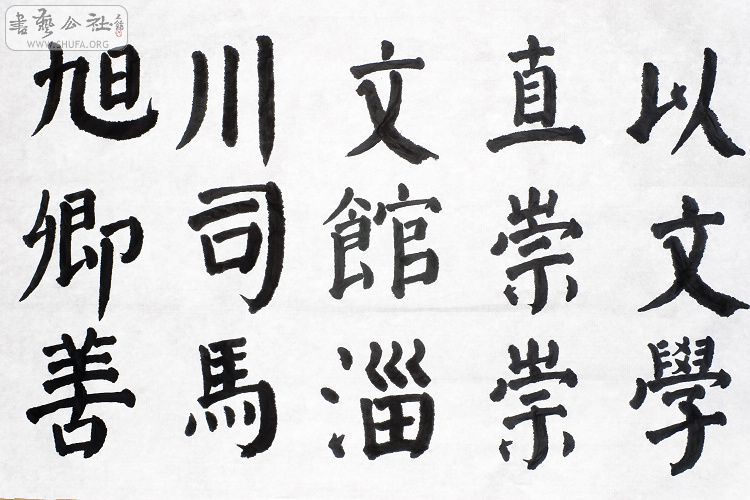 書藝公社
WWW.SHUFA.ORG
以文學
直崇崇
文館淄
川司馬
旭卿善